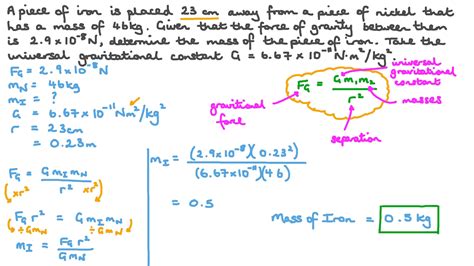 A piece of iron is placed 23 cm away from a piece of nickel that
has a mass of 46kg. Given that the force of gravity between them
is 2.9×10⁻⁸N, determine the mass of the piece of iron. Take the
universal gravitational constant G = 6.67×10⁻¹¹ N·m²/kg²
F_G = 2.9×10⁻⁸N
m_N = 46kg
m_I = ?
G = 6.67×10⁻¹¹ Nm²/kg²
r = 23cm
= 0.23m
universal
gravitational
constant
F_G = G m₁ m₂ / r²
masses
gravitional
force
separation
F_G = G m_I m_N / r²
×r² ×r²
F_G r² = G m_I m_N
÷Gm_N ÷Gm_N
m_I = F_G r² / G m_N
m_I = (2.9×10⁻⁸)(0.23²) / (6.67×10⁻¹¹)(46)
= 0.5
Mass of Iron = 0.5 kg